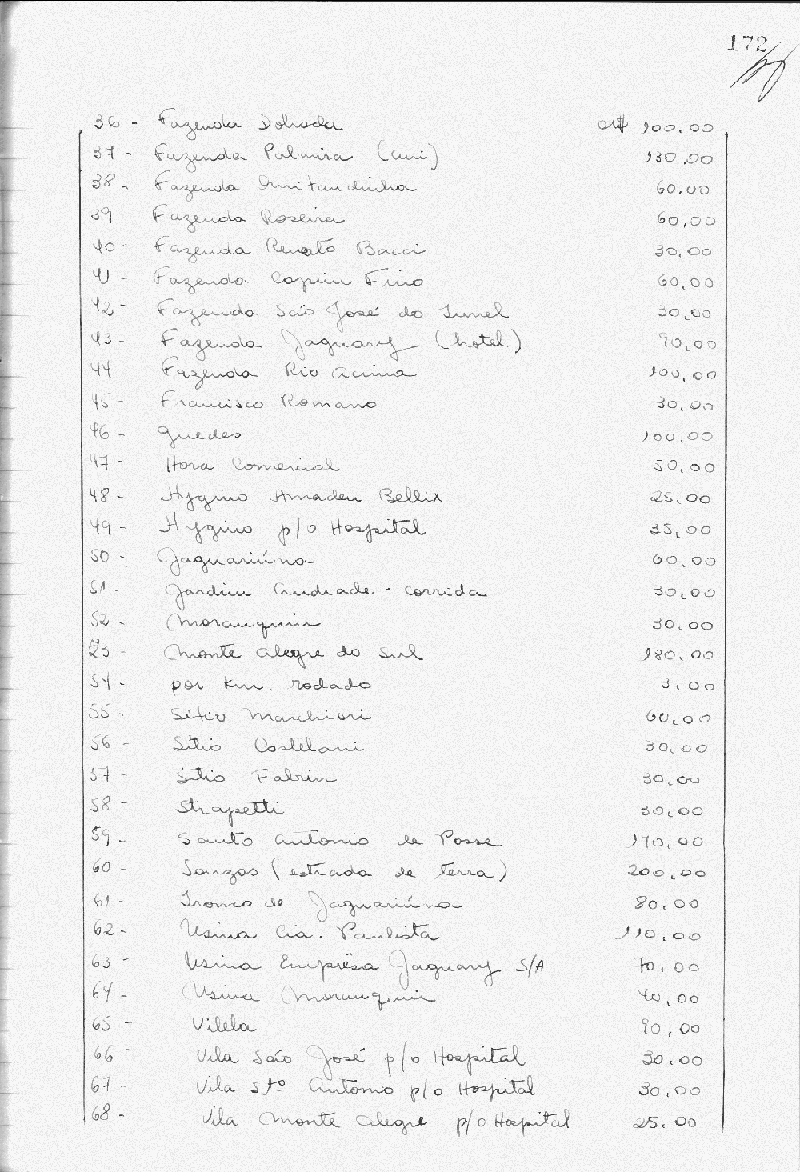 172
36 - Fazenda Cr$ 100,00
37 - Fazenda Palmira 130,00
38 - Fazenda 60,00
39 Fazenda Roseira 60,00
40 - Fazenda Renato Bacci 30,00
41 - Fazenda Capim Fino 60,00
42 - Fazenda São José do 30,00
43 - Fazenda Jaguary (hotel.) 90,00
44 Fazenda Rio Acima 100,00
45 - Francisco Romano 30,00
46 - Guedes 100,00
47 - Hora Comercial 50,00
48 - Hygino Amadeu Bellix 25,00
49 - Hygino p/o Hospital 35,00
50 - Jaguariúna 60,00
51 - Jardim Andrade - corrida 30,00
52 - 30,00
Monte Alegre do Sul 180,00
54 - por km. rodado 3,00
55 - Sítio Marchiori 60,00
56 - Sítio Castelani 30,00
57 - Sítio Fabrin 30,00
58 - Strapetti 30,00
59 - Santo Antonio de Posse 170,00
60 - (estrada de terra) 200,00
61 - Tronco de Jaguariúna 80,00
62 - Usina Cia. Paulista 110,00
63 - Usina Emprêsa Jaguary S/A 40,00
64 - Usina 40,00
65 - Vilela 90,00
66 - Vila São José p/o Hospital 30,00
67 - Vila Stº Antonio p/o Hospital 30,00
68 - Vila Monte Alegre p/o Hospital 25,00